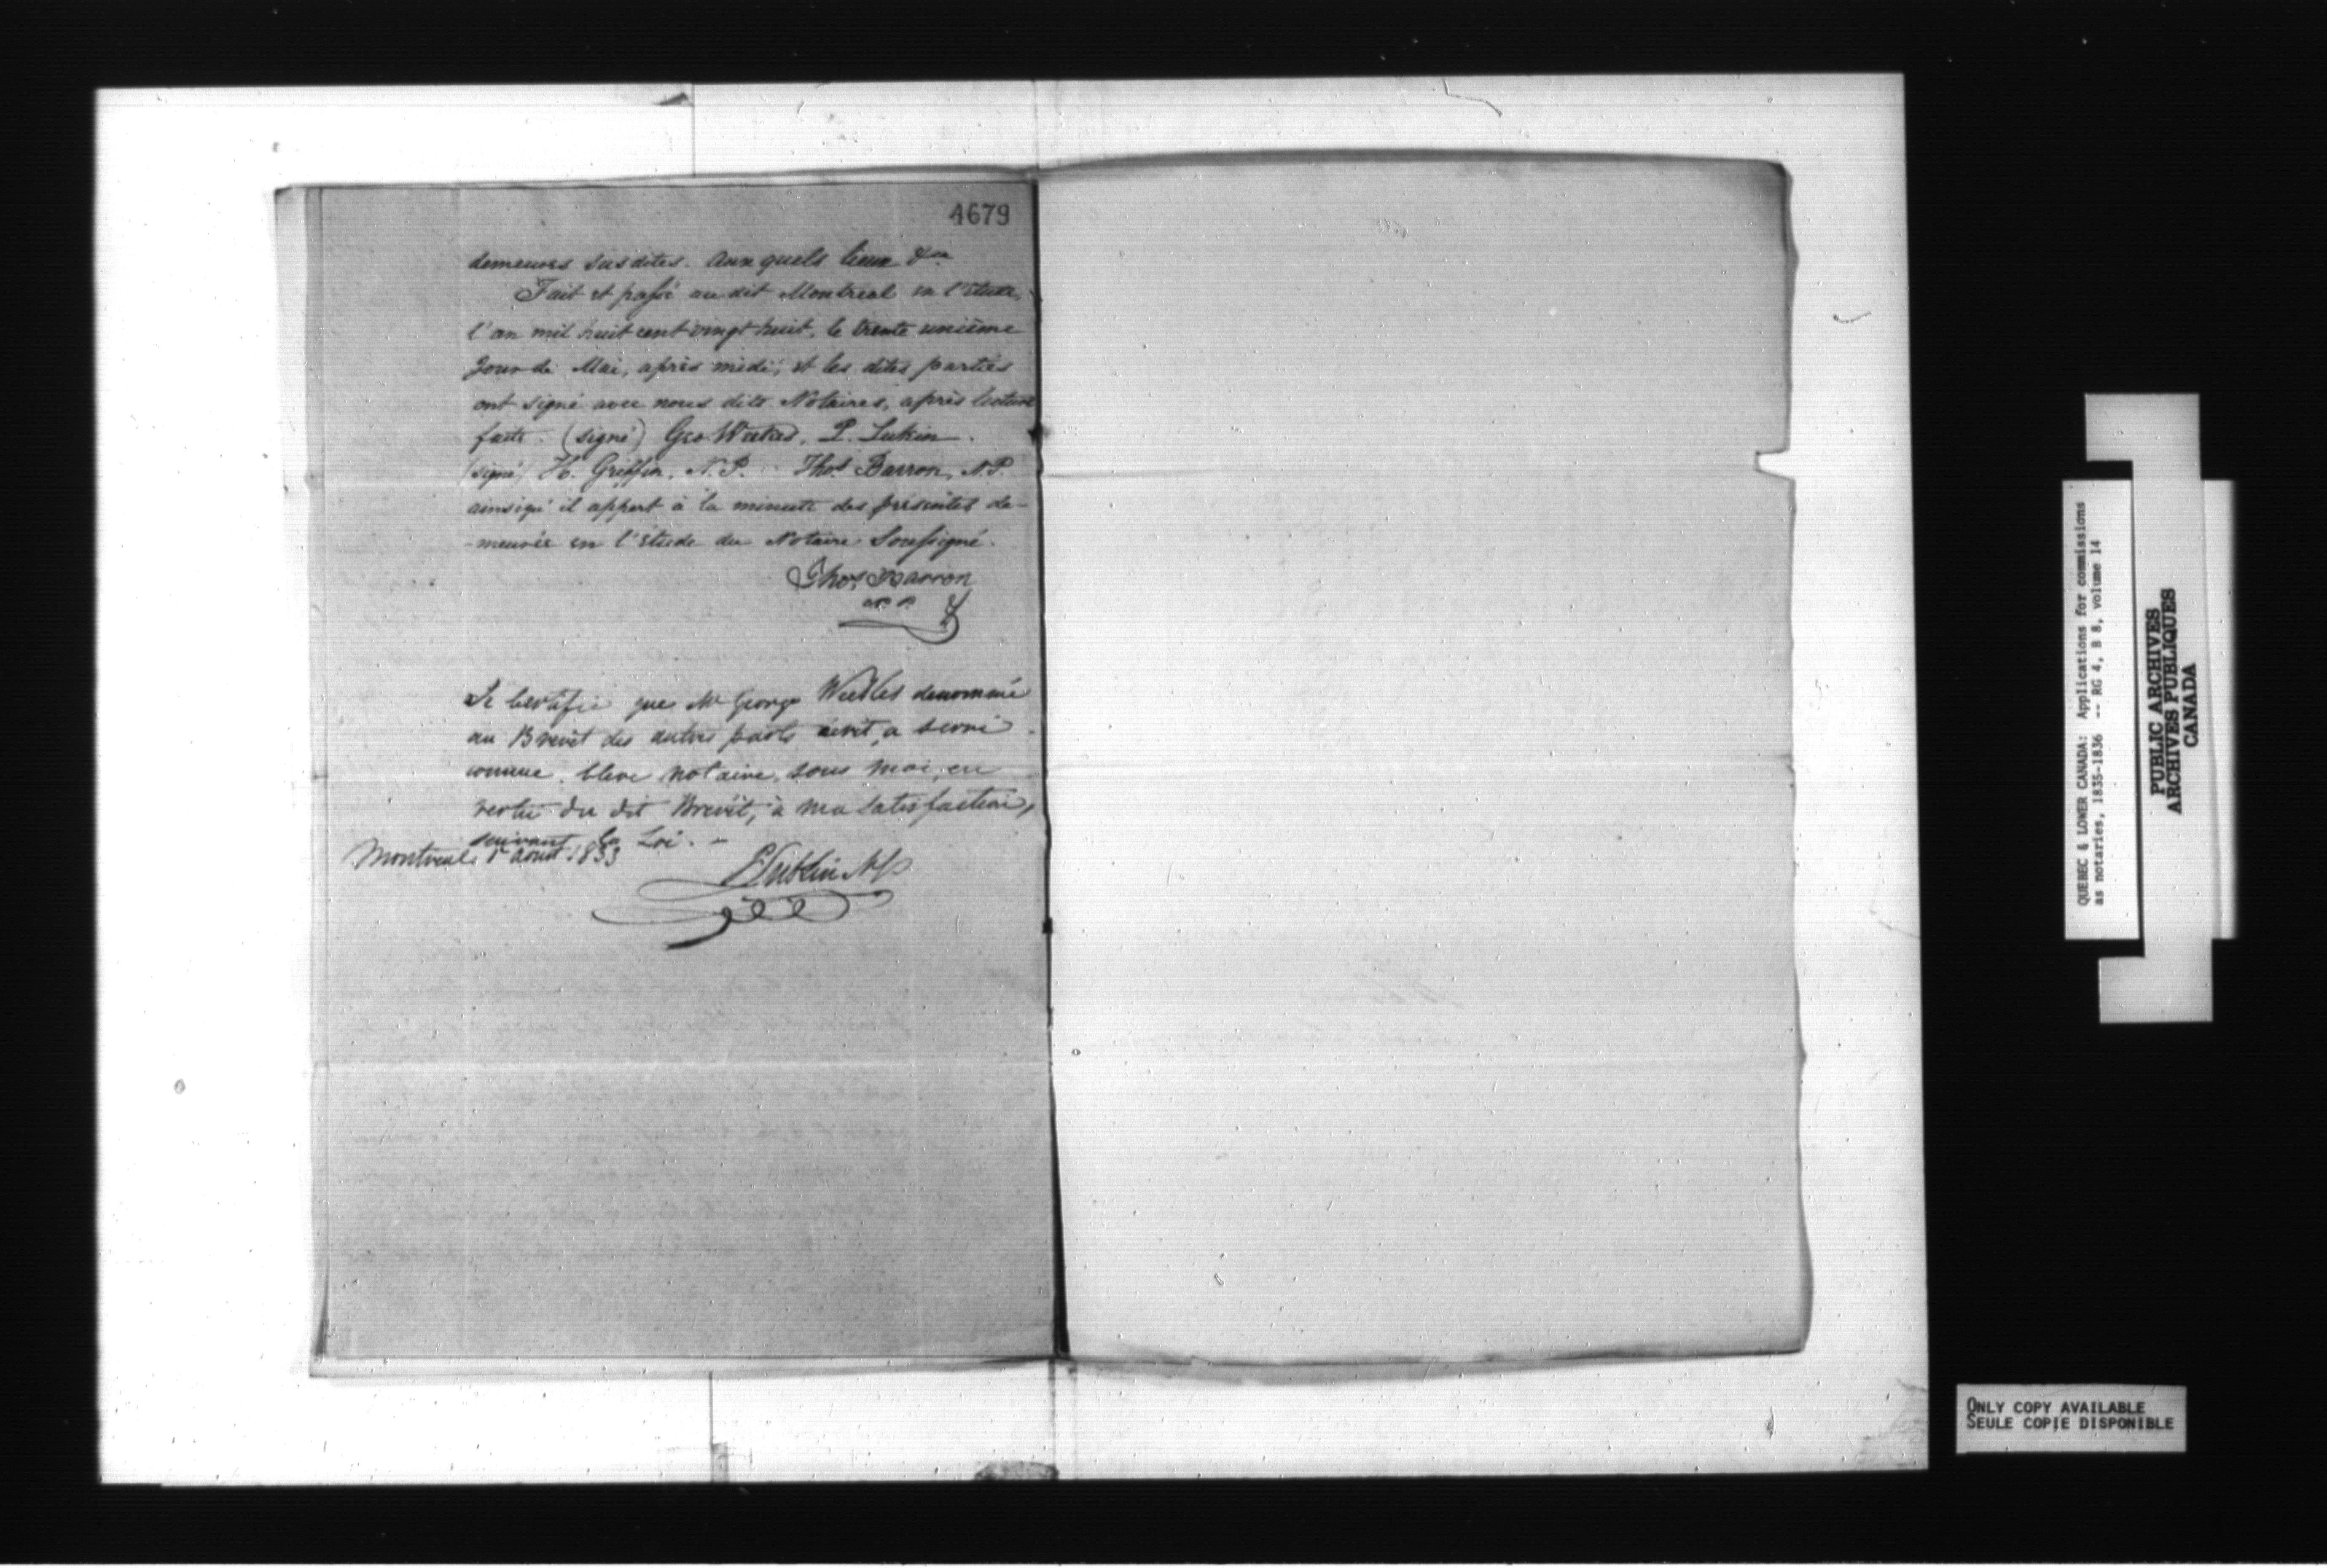 4679
demeures susdites. Aux quels lieux &ca
Fait et passé au dit Montreal en l'étude,
l'an mil huit cent vingt huit, le trente unième
Jour de Mai, après midi; et les dites parties
ont signé avec nous dits Notaires, après lecture
faite. (signé) Geo Weekes, P. Lukin.
(signé) H. Griffin, N.P. Thos. Barron, N.P.
ainsi qu'il appert à la minute des présentes de-
-meurée en l'étude du Notaire Soussigné.
Thos. Barron
N.P.
Je Certifie que Mr George Weekes denommé
au Brevet des autres parts écrit, a servi
comme Clerc notaire, sous moi, en
vertu du dit Brevet, à ma Satisfaction,
suivant la Loi. -
Montreal 1r Aout 1833
P Lukin NP
QUEBEC & LOWER CANADA: Applications for commissions
as notaries, 1835-1836 -- RG 4, B 8, volume 14
PUBLIC ARCHIVES
ARCHIVES PUBLIQUES
CANADA
ONLY COPY AVAILABLE
SEULE COPIE DISPONIBLE